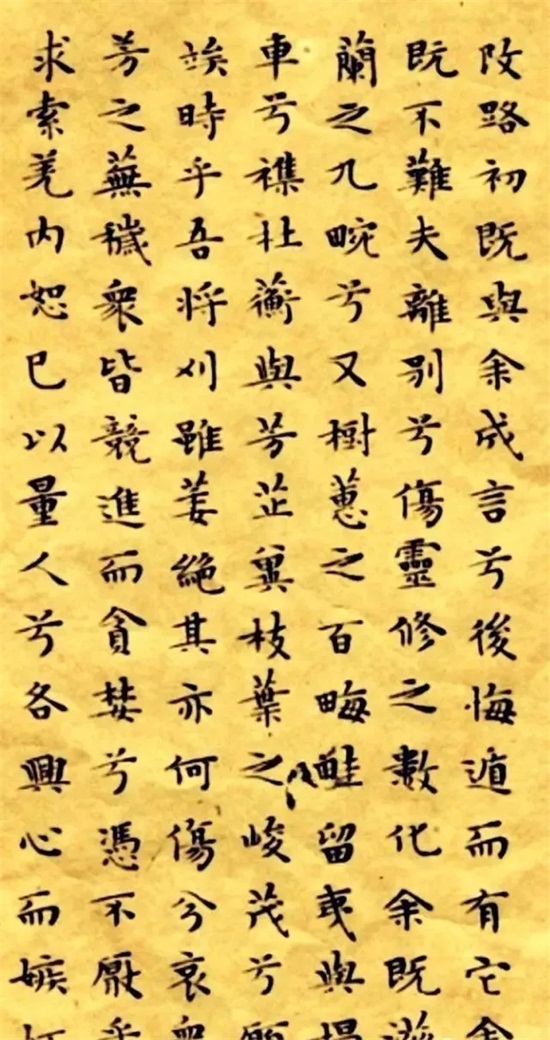 攺路初既與余成言兮後悔遁而有它余
既不難夫離別兮傷靈修之數化余既滋
蘭之九畹兮又樹蕙之百畮畦留夷與揭
車兮襍杜蘅與芳芷兾枝葉之峻茂兮願
竢時乎吾將刈雖萎絕其亦何傷兮哀衆
芳之蕪穢衆皆競進而貪婪兮憑不厭乎
求索羌内恕已以量人兮各興心而嫉